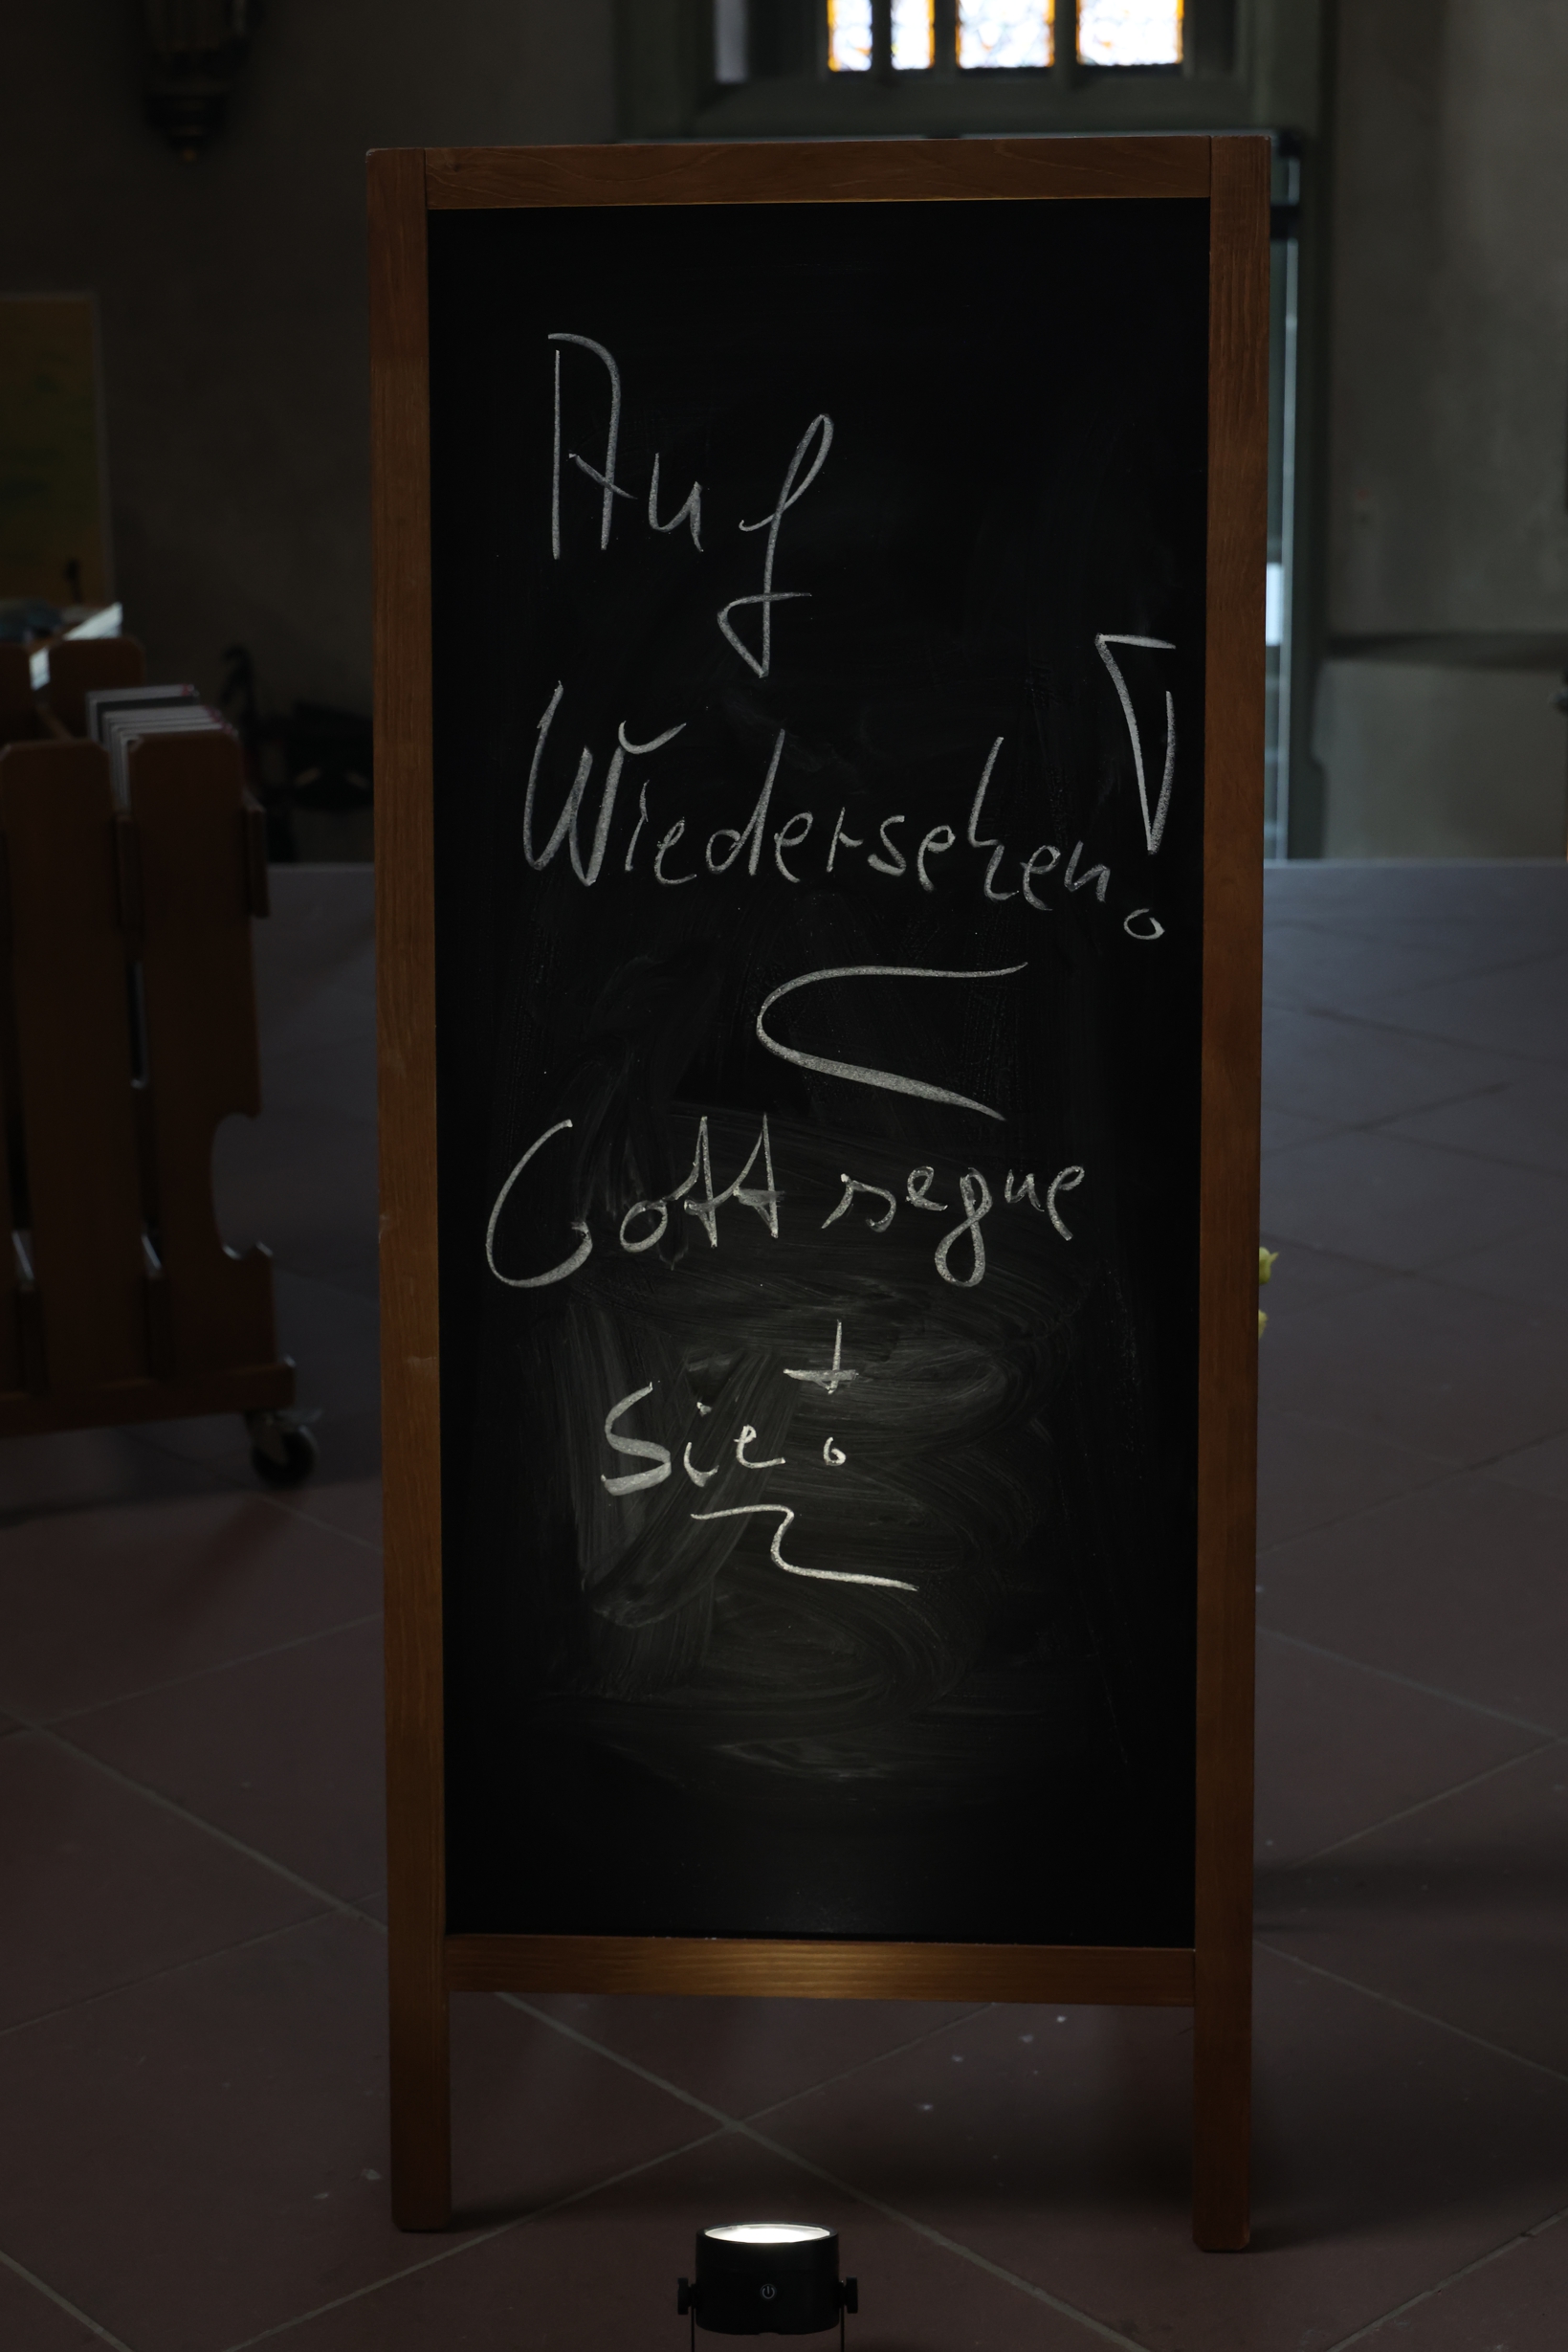 Auf
Wiedersehen!
Gott segne
Sie!